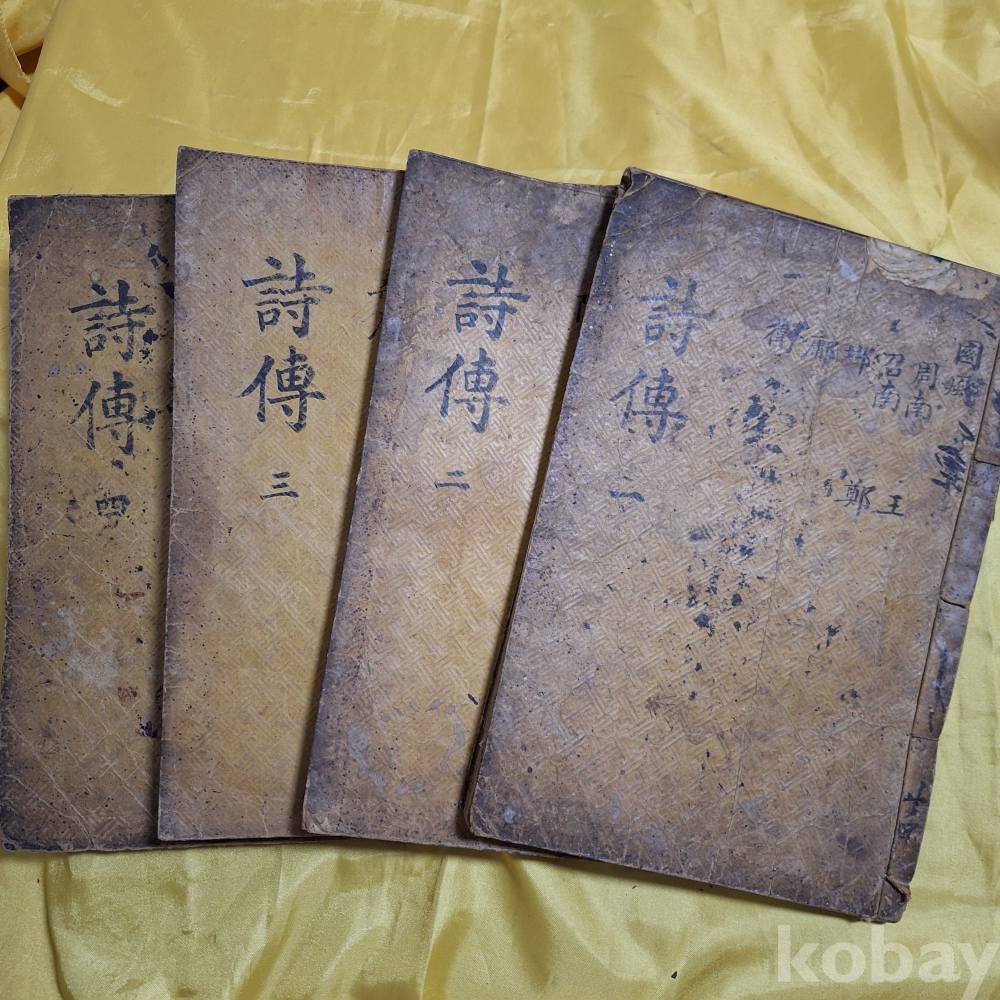 詩傳 一
國風
周南
召南
邶
鄘
衛
王
鄭
詩傳 二
詩傳 三
詩傳 四
kobay